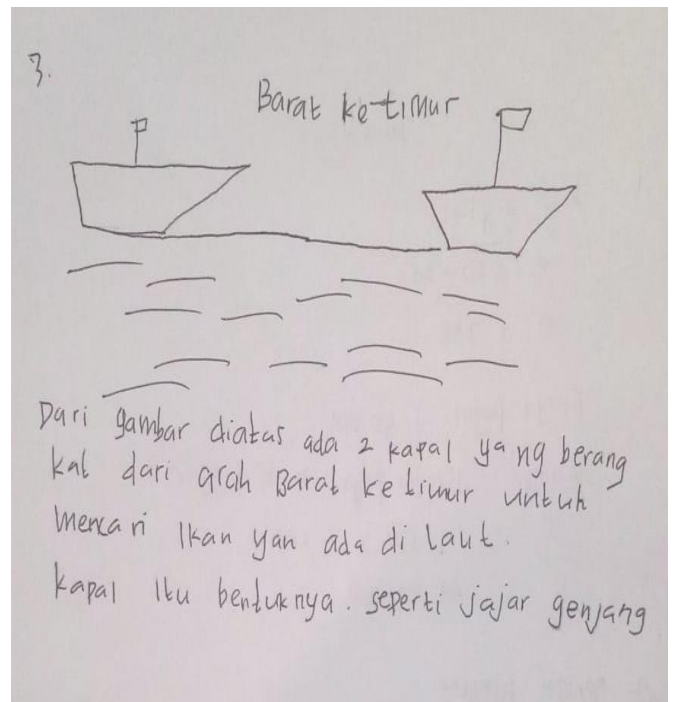 3.
Barat ke-timur
Dari gambar diatas ada 2 kapal yang berang
kat dari arah Barat ke timur untuh
mencari Ikan yan ada di laut.
kapal Itu bentuknya. seperti jajar genjang